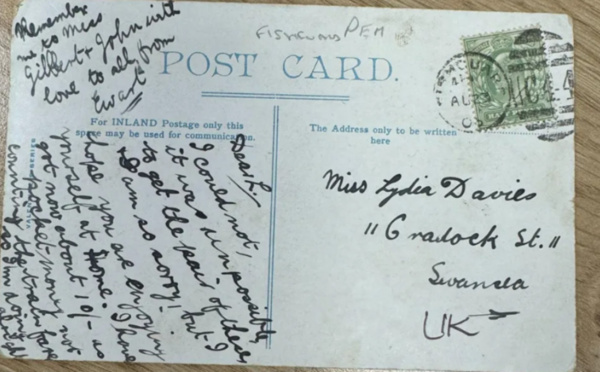 Remember
me to Miss
Gilbert & John with
love to all from
Ewart
FISHGUARD PEM
POST CARD.
For INLAND Postage only this
space may be used for communication.
The Address only to be written
here
Dear L,
I could not,
it was impossible,
to get the pair of these
I am so sorry! but I
hope you are enjoying
yourself at home. I have
got now about 10/- as
pocket money nor
counting the train fare
so I'm doing
Miss Lydia Davies
11 Cradock St.
Swansea
UK
FISHGUARD
AU